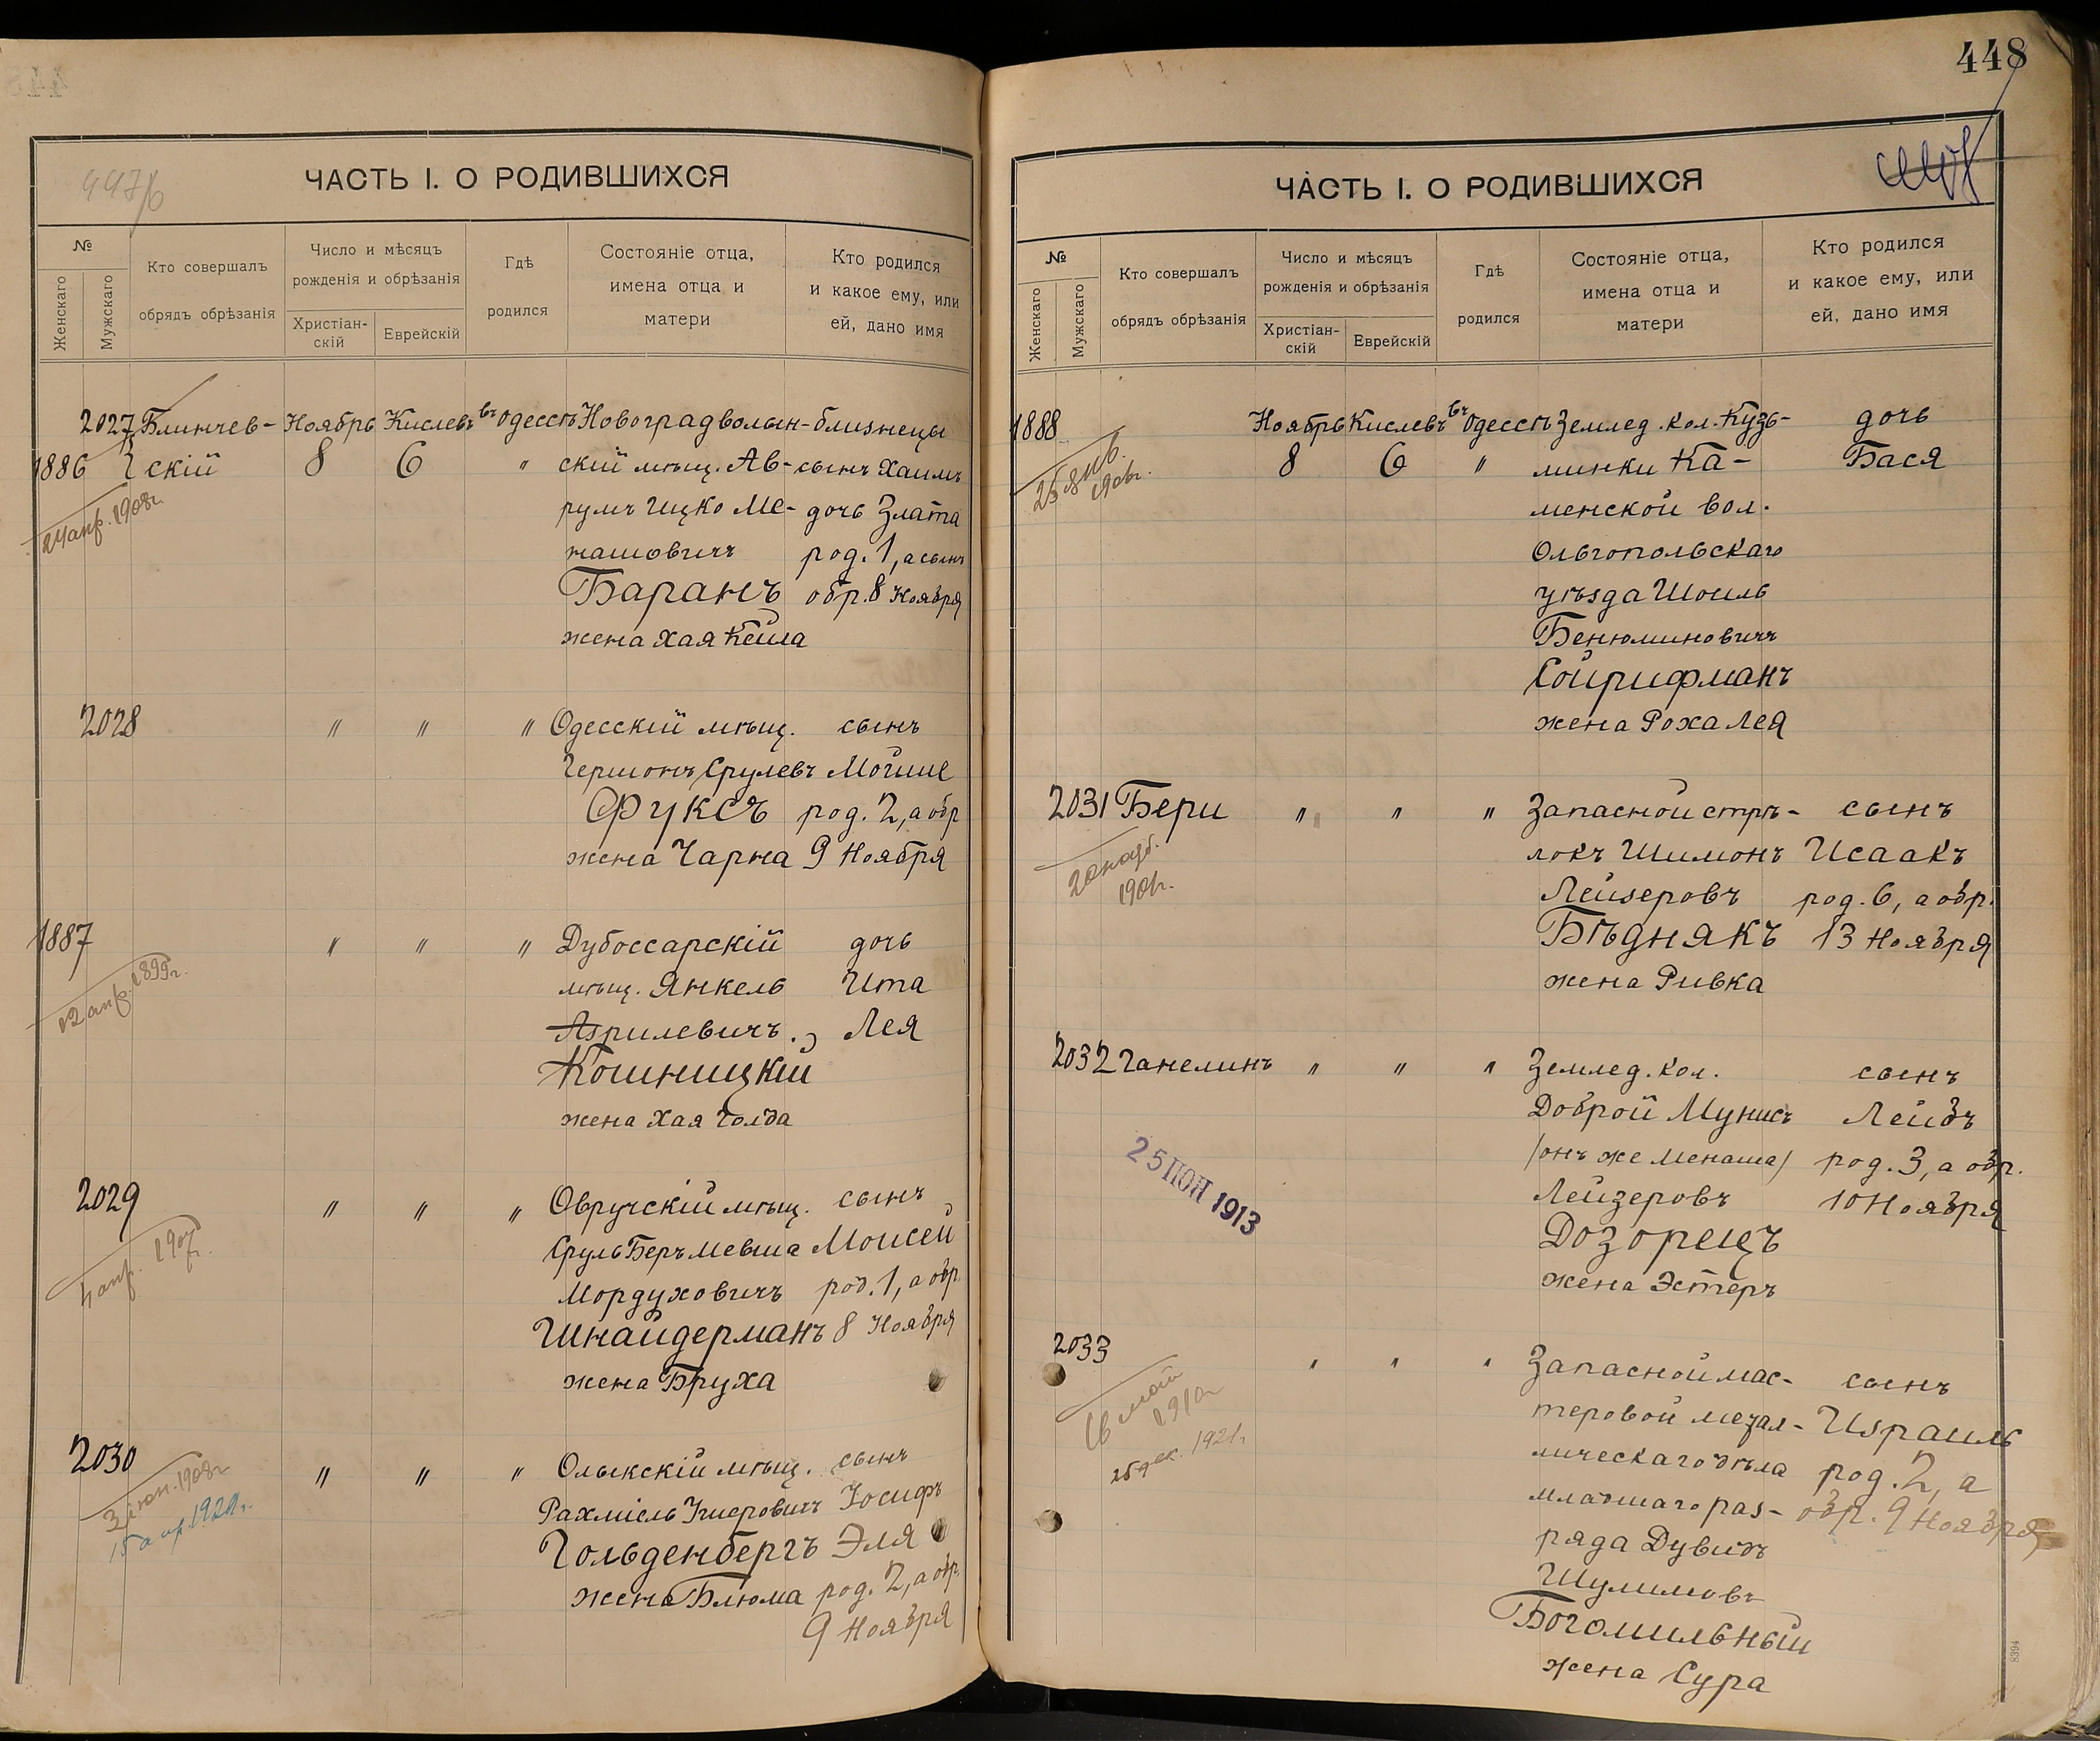 448
ЧАСТЬ I. О РОДИВШИХСЯ
№
Женскаго
Мужскаго
Кто совершалъ
обрядъ обрѣзанія
Число и мѣсяцъ
рожденія и обрѣзанія
Христіан-
скій
Еврейскій
Гдѣ
родился
Состояніе отца,
имена отца и
матери
Кто родился
и какое ему, или
ей, дано имя
2027 Блинчев- Ноябрь Кислевъ въ Одессѣ Новоградволын- близнецы
1886 скій 8 6 " скій мѣщ. Ав- сынъ Хаимъ
румъ Ицко Ме- дочь Злата
24 апр. 1908г.
нашовичъ род. 1, а сынъ
Баранъ обр. 8 Ноября
жена Хая Кейла
2028 " " " Одесскій мѣщ. сынъ
Гершонъ Срулевъ Мойше
Фуксъ род. 2, а обр
жена Чарна 9 Ноября
1887 " " " Дубоссарскій дочь
12 апр. 1899г.
мѣщ. Янкель Ита
Азрилевичъ Лея
Кошницкій
жена Хая Голда
2029 " " " Овручскій мѣщ. сынъ
4 апр. 1907г.
Сруль Беръ Мевша Моисей
Мордуховичъ род. 1, а обр.
Шнайдерманъ 8 Ноября
жена Бруха
2030 " " " Олыкскій мѣщ. сынъ
3 іюн. 1908г
15 апр. 1920г.
Рахміель Ушеровичъ Іосифъ
Гольденбергъ Эля
жена Блюма род. 2, а обр.
9 Ноября
ЧАСТЬ I. О РОДИВШИХСЯ
№
Женскаго
Мужскаго
Кто совершалъ
обрядъ обрѣзанія
Число и мѣсяцъ
рожденія и обрѣзанія
Христіан-
скій
Еврейскій
Гдѣ
родился
Состояніе отца,
имена отца и
матери
Кто родился
и какое ему, или
ей, дано имя
1888 Ноябрь Кислевъ въ Одессѣ Землед. кол. Кузь- дочь
8 6 " минки Ка- Бася
25 янв.
менской вол.
Ольгопольскаго
уѣзда Шоиль
Бенюминовичъ
Сойрифманъ
жена Роха Лея
2031 Бери " " " Запасной стрѣ- сынъ
локъ Шимонъ Исаакъ
Лейзеровъ род. 6, а обр.
Бѣднякъ 13 Ноября
жена Ривка
2032 Ганелинъ " " " Землед. кол. сынъ
Доброй Мунисъ Лейбъ
/онъ же Менаша/ род. 3, а обр.
25 1913
Лейзеровъ 10 Ноября
Дозорецъ
жена Эстеръ
2033 " " " Запасной мас- сынъ
теровой метал- Израиль
16 май
1910г
15 дек. 1921г
лическаго дѣла род. 2, а
младшаго раз- обр. 9 Ноября
ряда Дувидъ
Шулимовъ
Богомильный
жена Сура
8394